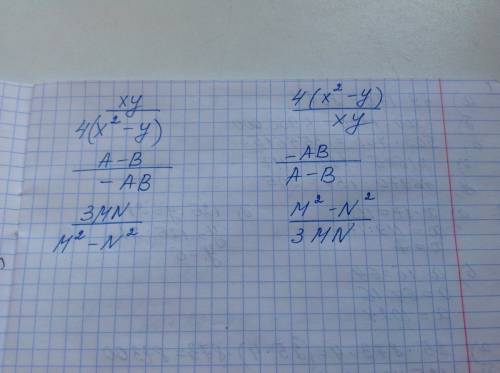 xy / 4(x² - y)
4(x² - y) / xy
A - B / - AB
- AB / A - B
3MN / M² - N²
M² - N² / 3MN